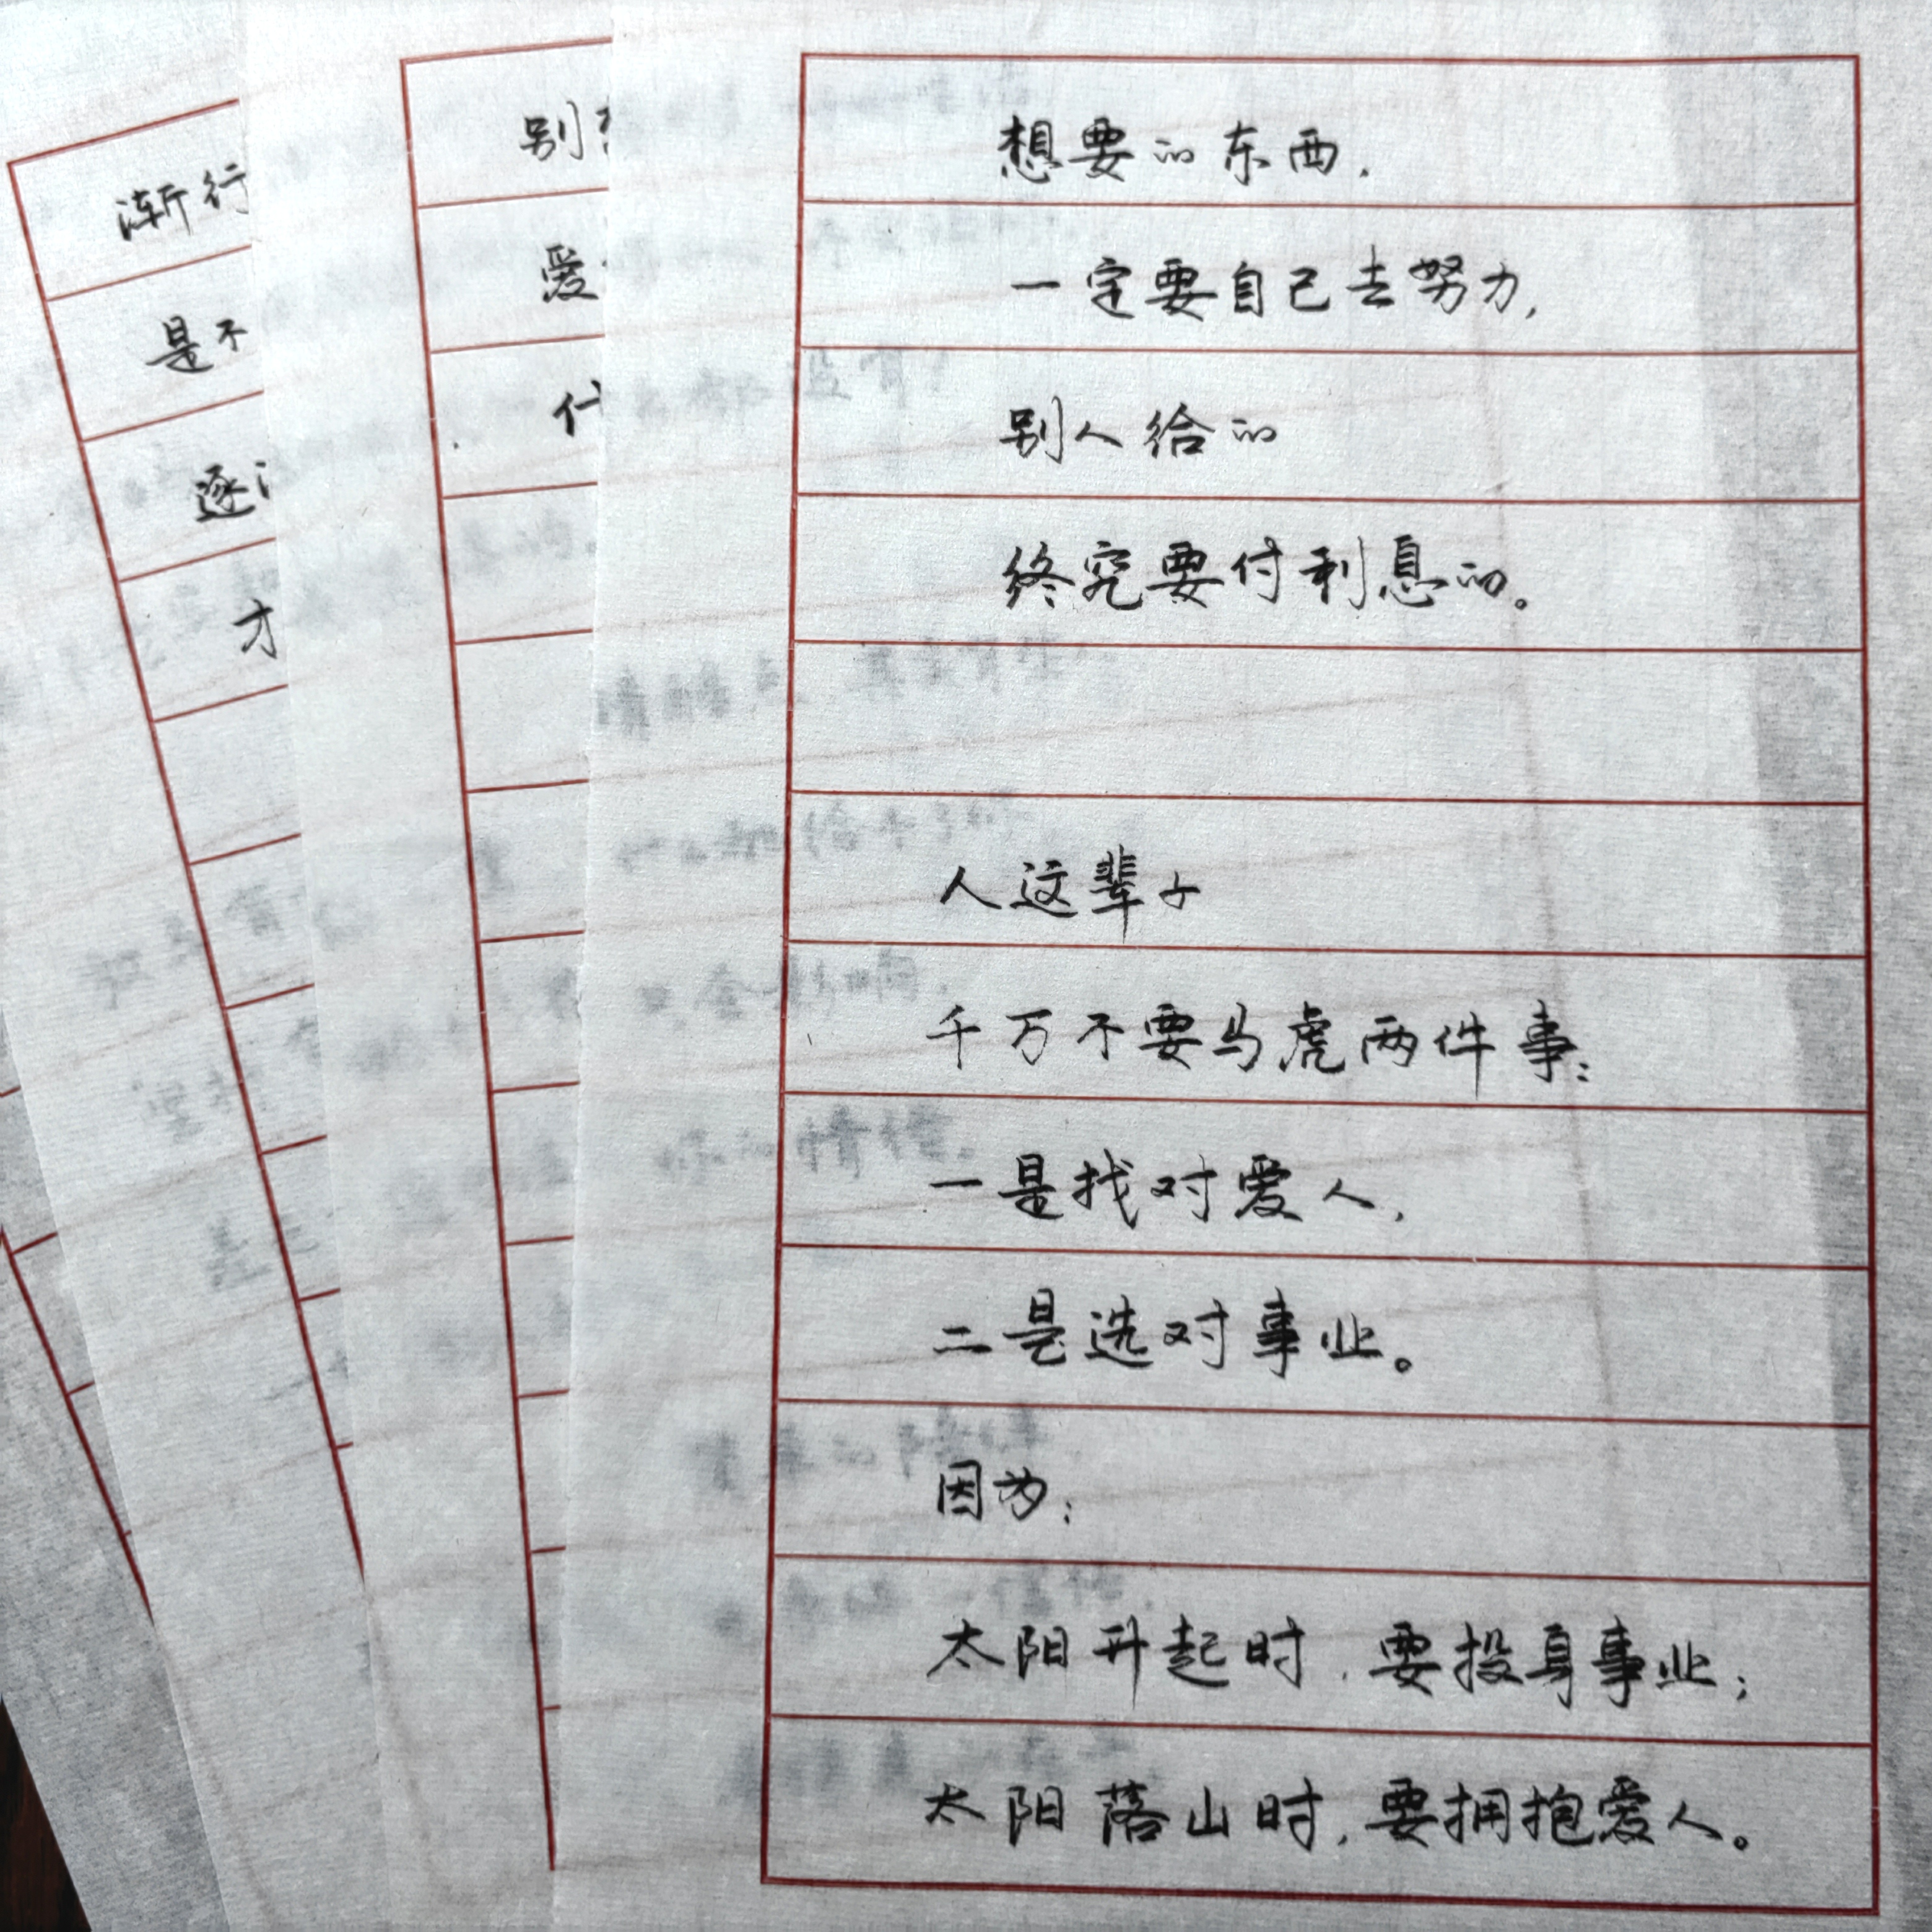 渐行
是不
逐
才
别
爱
什
想要的东西，
一定要自己去努力，
别人给的
终究要付利息的。
人这辈子
千万不要马虎两件事：
一是找对爱人，
二是选对事业。
因为：
太阳升起时，要投身事业；
太阳落山时，要拥抱爱人。